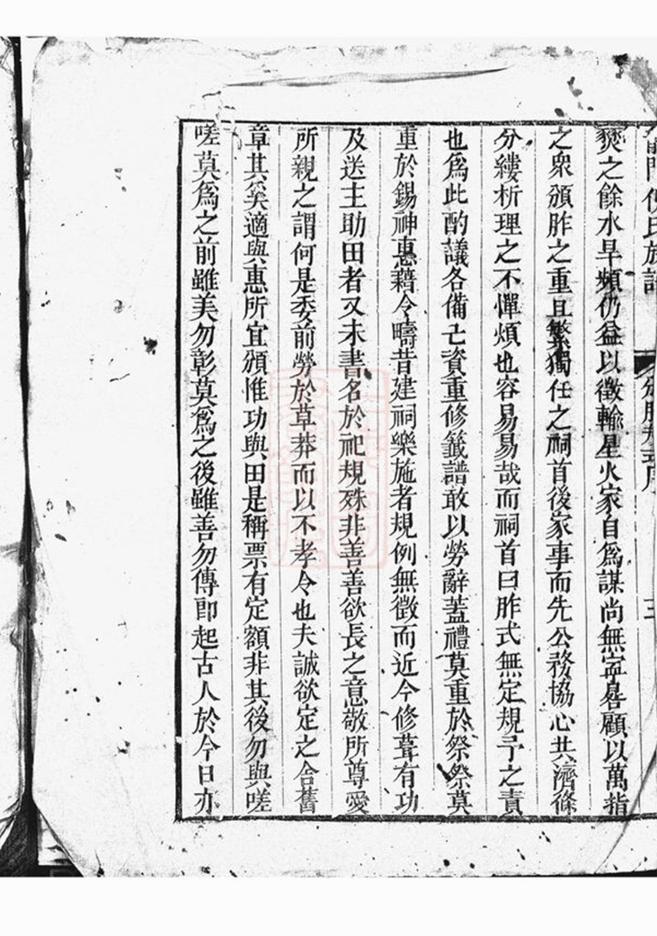 倪氏族譜
頒胙規式序
三
燹之餘水旱頻仍益以徵輸星火家自為謀尚無寧晷顧以萬指
之衆頒胙之重且繁獨任之祠首後家事而先公務協心共濟條
分縷析理之不憚煩也容易易哉而祠首曰胙式無定規予之責
也為此酌議各備亡資重修籤譜敢以勞辭蓋禮莫重於祭祭莫
重於錫神惠藉令疇昔建祠樂施者規例無徵而近今修葺有功
及送主助田者又未書名於祀規殊非善善欲長之意敬所尊愛
所親之謂何是委前勞於草莽而以不孝令也夫誠欲定之舍舊
章其奚適與惠所宜頒惟功與田是稱票有定額非其後勿與嗟
嗟莫為之前雖美勿彰莫為之後雖善勿傳即起古人於今日亦